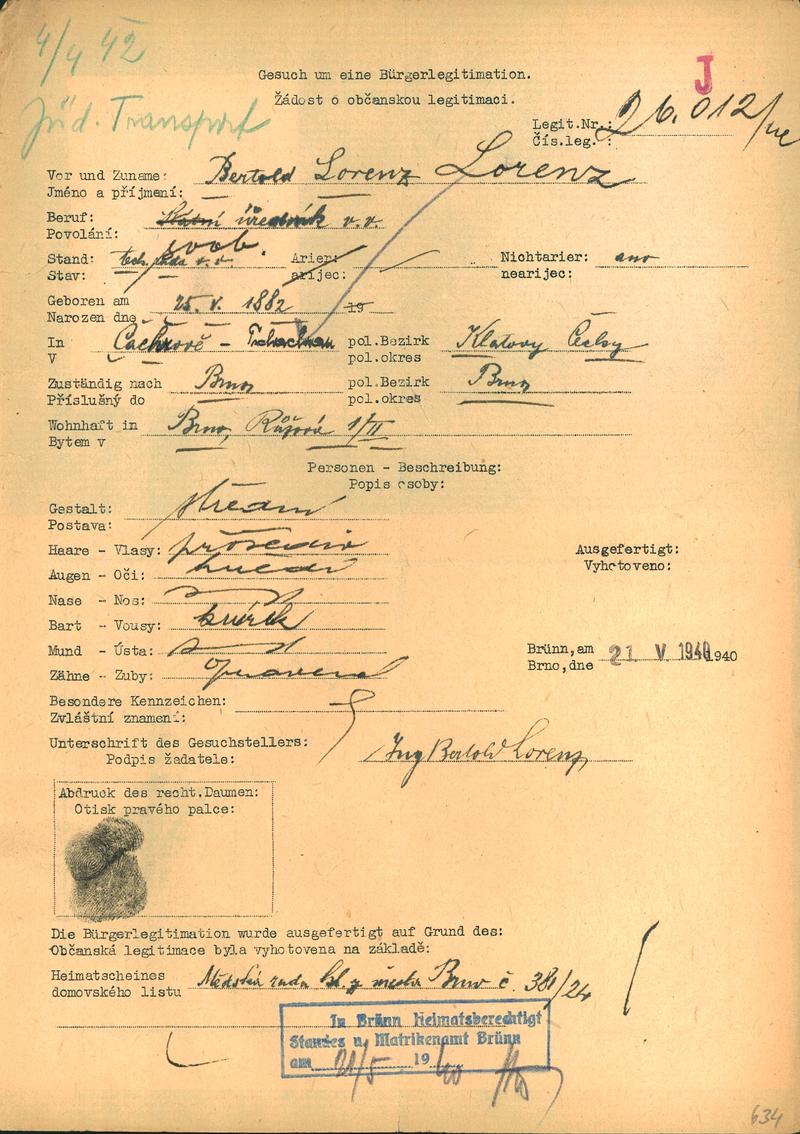 4/4 42
Jüd. Transport
J
Gesuch um eine Bürgerlegitimation.
Žádost o občanskou legitimaci.
Legit.Nr.: 26.012
Čís.leg. :
Vor und Zuname: Bertold Lorenz Lorenz
Jméno a příjmení:
Beruf: Státní úředník v.v.
Povolání:
Stand: svob. Arier: Nichtarier: ano
Stav: arijec: nearijec:
Geboren am 25. V. 1882 19
Narozen dne
In Čachrově - pol.Bezirk Klatovy Čechy
V pol.okres
Zuständig nach Brno pol.Bezirk Brno
Příslušný do pol.okres
Wohnhaft in Brno, Růžová 1/II
Bytem v
Personen - Beschreibung:
Popis osoby:
Gestalt: střední
Postava:
Haare - Vlasy: prošedivě
Augen - Oči: hnědé
Nase - Nos:
Bart - Vousy: knírek
Mund - Ústa:
Zähne - Zuby: opravené
Ausgefertigt:
Vyhotoveno:
Brünn, am 21 V 1940 1940
Brno, dne
Besondere Kennzeichen:
Zvláštní znamení:
Unterschrift des Gesuchstellers: Ing Bertold Lorenz
Podpis žadatele:
Abdruck des recht.Daumen:
Otisk pravého palce:
Die Bürgerlegitimation wurde ausgefertigt auf Grund des:
Občanská legitimace byla vyhotovena na základě:
Heimatscheines Městská rada hl. z. města Brno č. 381/24
domovského listu
In Brünn Heimatsberechtigt
Standes u. Matrikenamt Brünn
am 21/5 19 40
634